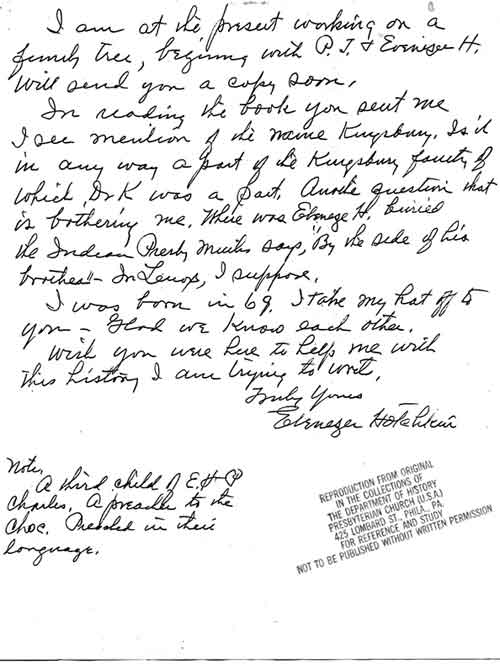 I am at the present working on a
family tree, beginning with P. T. & Ebenezer H.
Will send you a copy soon.
In reading the book you sent me
I see mention of the name Kingsbury. Is it
in any way a part of the Kingsbury family of
which Dr K was a part. Another question that
is bothering me. Where was Ebeneze H. buried
the Indian Presby Minutes says, "By the side of his
brother" - In Lenox, I suppose.
I was born in 69. I take my hat off to
you - Glad we know each other.
Wish you were here to help me with
this history I am trying to write.
Truly Yours
Ebenezer Hotchkin
Note,
A third child of E. H & P
Charles, A preacher to the
Choc. Preached in their
language.
REPRODUCTION FROM ORIGINAL
IN THE COLLECTIONS OF
THE DEPARTMENT OF HISTORY
PRESBYTERIAN CHURCH (U.S.A.)
425 LOMBARD ST., PHILA., PA.
FOR REFERENCE AND STUDY
NOT TO BE PUBLISHED WITHOUT WRITTEN PERMISSION